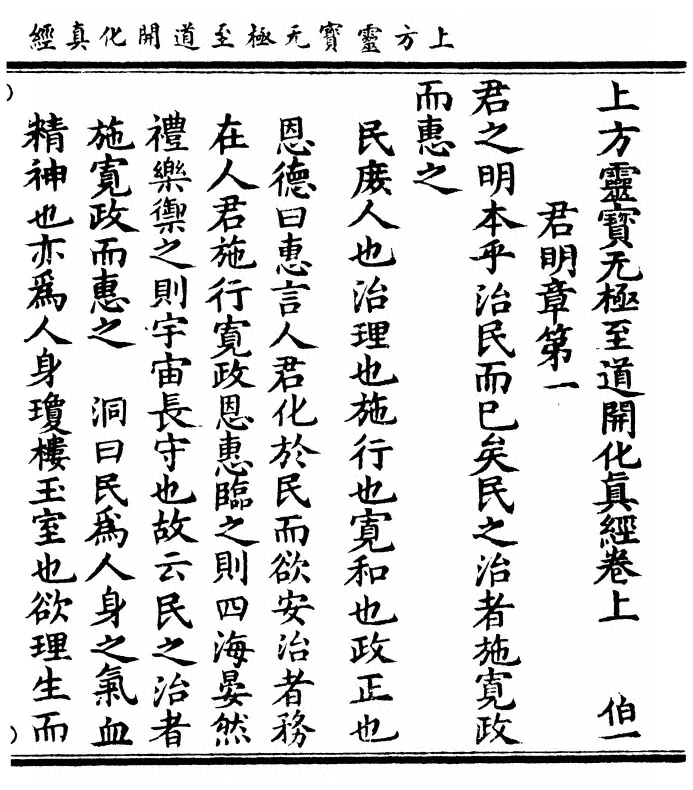 上方靈寶无極至道開化真經
上方靈寶无極至道開化眞經卷上 伯一
君明章第一
君之明本乎治民而已矣民之治者施寬政
而惠之
民庻人也治理也施行也寬和也政正也
恩德曰惠言人君化於民而欲安治者務
在人君施行寬政恩惠臨之則四海晏然
禮樂禦之則宇宙長守也故云民之治者
施寬政而惠之 洞曰民爲人身之氣血
精神也亦爲人身瓊樓玉室也欲理生而